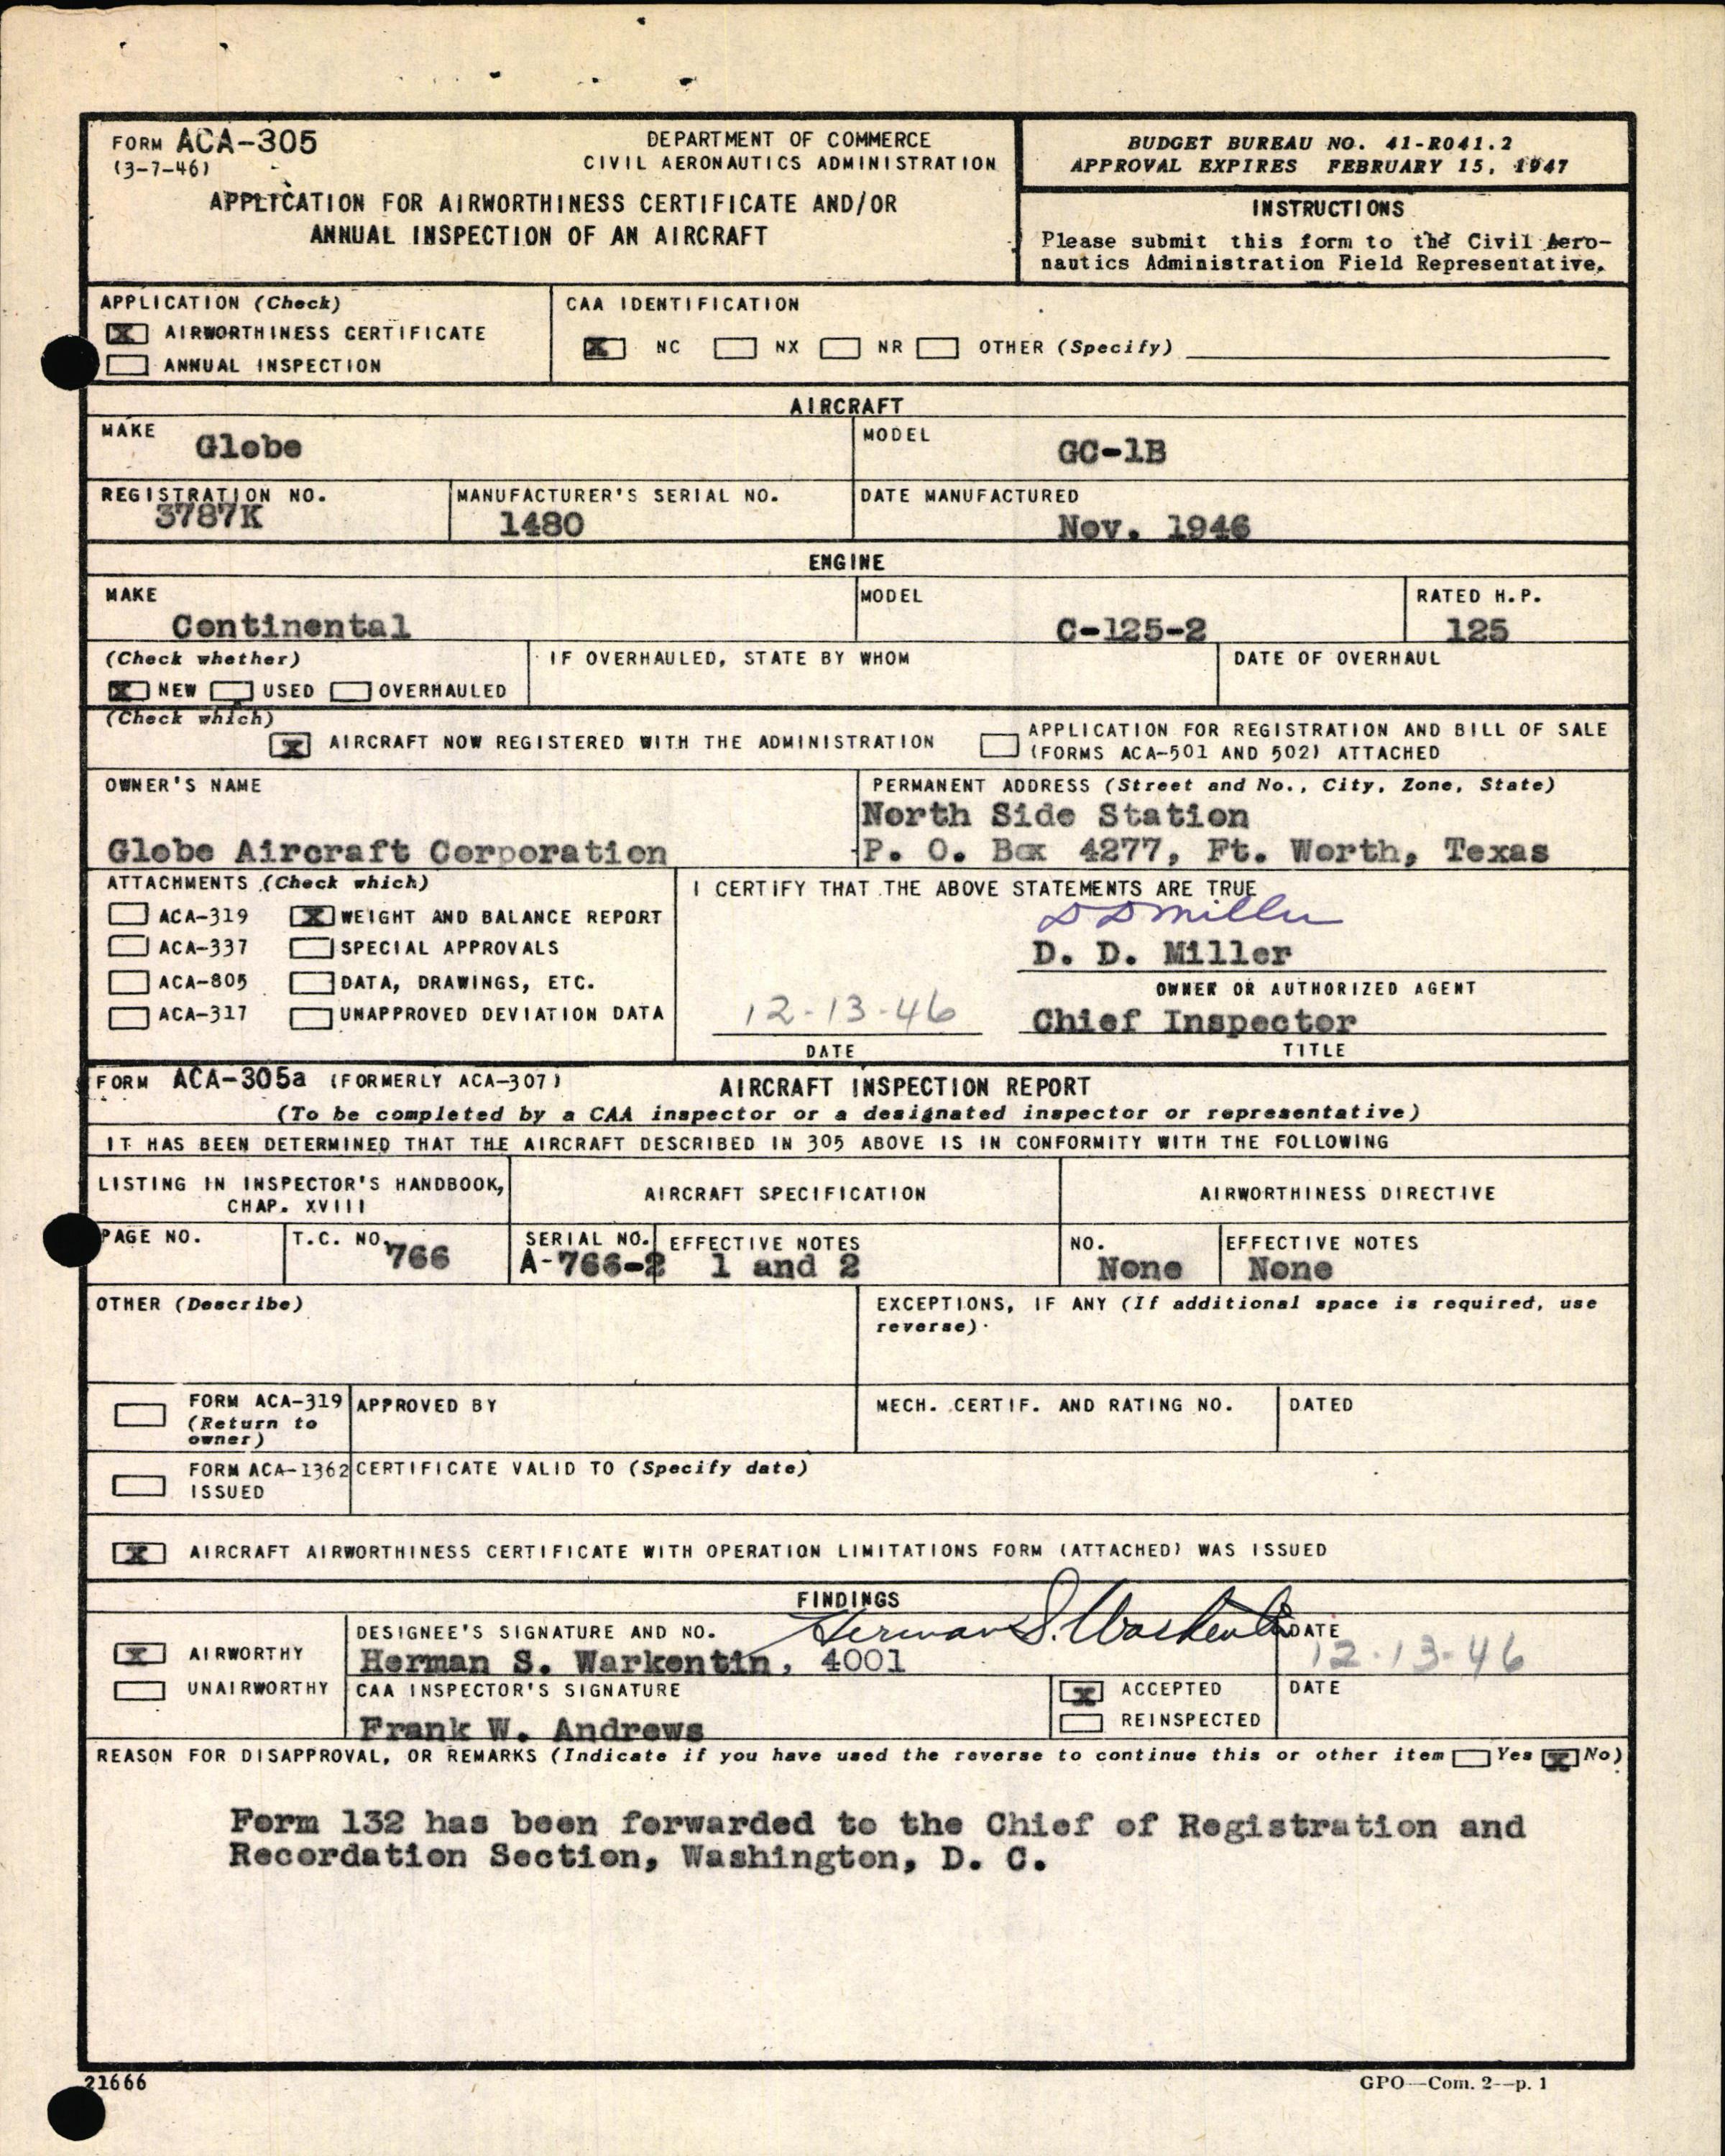 FORM ACA-305
(3-7-46)
DEPARTMENT OF COMMERCE
CIVIL AERONAUTICS ADMINISTRATION
APPLICATION FOR AIRWORTHINESS CERTIFICATE AND/OR
ANNUAL INSPECTION OF AN AIRCRAFT
BUDGET BUREAU NO. 41-R041.2
APPROVAL EXPIRES FEBRUARY 15, 1947
INSTRUCTIONS
Please submit this form to the Civil Aero-
nautics Administration Field Representative.
APPLICATION (Check)
X AIRWORTHINESS CERTIFICATE
ANNUAL INSPECTION
CAA IDENTIFICATION
X NC NX NR OTHER (Specify)
AIRCRAFT
MAKE
Globe
MODEL
GC-1B
REGISTRATION NO.
3787K
MANUFACTURER'S SERIAL NO.
1480
DATE MANUFACTURED
Nov. 1946
ENGINE
MAKE
Continental
MODEL
C-125-2
RATED H.P.
125
(Check whether)
X NEW USED OVERHAULED
IF OVERHAULED, STATE BY WHOM
DATE OF OVERHAUL
(Check which)
X AIRCRAFT NOW REGISTERED WITH THE ADMINISTRATION
APPLICATION FOR REGISTRATION AND BILL OF SALE
(FORMS ACA-501 AND 502) ATTACHED
OWNER'S NAME
Globe Aircraft Corporation
PERMANENT ADDRESS (Street and No., City, Zone, State)
North Side Station
P. O. Box 4277, Ft. Worth, Texas
ATTACHMENTS (Check which)
ACA-319 X WEIGHT AND BALANCE REPORT
ACA-337 SPECIAL APPROVALS
ACA-805 DATA, DRAWINGS, ETC.
ACA-317 UNAPPROVED DEVIATION DATA
I CERTIFY THAT THE ABOVE STATEMENTS ARE TRUE
D D Miller
D. D. Miller
OWNER OR AUTHORIZED AGENT
12-13-46
Chief Inspector
DATE
TITLE
FORM ACA-305a (FORMERLY ACA-307)
AIRCRAFT INSPECTION REPORT
(To be completed by a CAA inspector or a designated inspector or representative)
IT HAS BEEN DETERMINED THAT THE AIRCRAFT DESCRIBED IN 305 ABOVE IS IN CONFORMITY WITH THE FOLLOWING
LISTING IN INSPECTOR'S HANDBOOK,
CHAP. XVIII
AIRCRAFT SPECIFICATION
AIRWORTHINESS DIRECTIVE
PAGE NO.
T.C. NO.
766
SERIAL NO.
A-766-2
EFFECTIVE NOTES
1 and 2
NO.
None
EFFECTIVE NOTES
None
OTHER (Describe)
EXCEPTIONS, IF ANY (If additional space is required, use
reverse)
FORM ACA-319
(Return to
owner)
APPROVED BY
MECH. CERTIF. AND RATING NO.
DATED
FORM ACA-1362
ISSUED
CERTIFICATE VALID TO (Specify date)
X AIRCRAFT AIRWORTHINESS CERTIFICATE WITH OPERATION LIMITATIONS FORM (ATTACHED) WAS ISSUED
FINDINGS
X AIRWORTHY
UNAIRWORTHY
DESIGNEE'S SIGNATURE AND NO.
Herman S. Warkentin
Herman S. Warkentin, 4001
DATE
12-13-46
CAA INSPECTOR'S SIGNATURE
Frank W. Andrews
X ACCEPTED
REINSPECTED
DATE
REASON FOR DISAPPROVAL, OR REMARKS (Indicate if you have used the reverse to continue this or other item Yes X No)
Form 132 has been forwarded to the Chief of Registration and
Recordation Section, Washington, D. C.
21666
GPO—Com. 2--p. 1